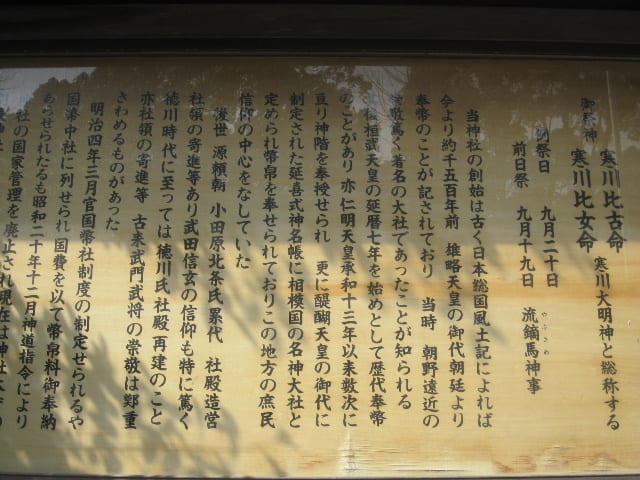 寒川比古命
御祭神 寒川大明神と総称する
寒川比女命
例祭日 九月二十日
前日祭 九月十九日 流鏑馬神事
やぶさめ
当神社の創始は古く日本総国風土記によれば
今より約千五百年前 雄略天皇の御代朝廷より
奉幣のことが記されており 当時 朝野遠近の
崇敬篤く著名の大社であったことが知られる
其後桓武天皇の延暦七年を始めとして歴代奉幣
のことがあり 亦仁明天皇承和十三年以来数次に
亘り神階を奉授せられ 更に醍醐天皇の御代に
制定された延喜式神名帳に相模国の名神大社と
定められ幣帛を奉せられておりこの地方の庶民
信仰の中心をなしていた
後世 源頼朝 小田原北条氏累代 社殿造営
社領の寄進等あり武田信玄の信仰も特に篤く
徳川時代に至っては徳川氏社殿再建のこと
亦社領の寄進等 古来武門武将の崇敬は鄭重
をきわめるものがあった
明治四年三月官国幣社制度の制定せられるや
国幣中社に列せられ 国費を以て幣帛料御奉納
あらせられたるも昭和二十年十二月神道指令により
神社の国家管理を廃止され現在は神社本庁の